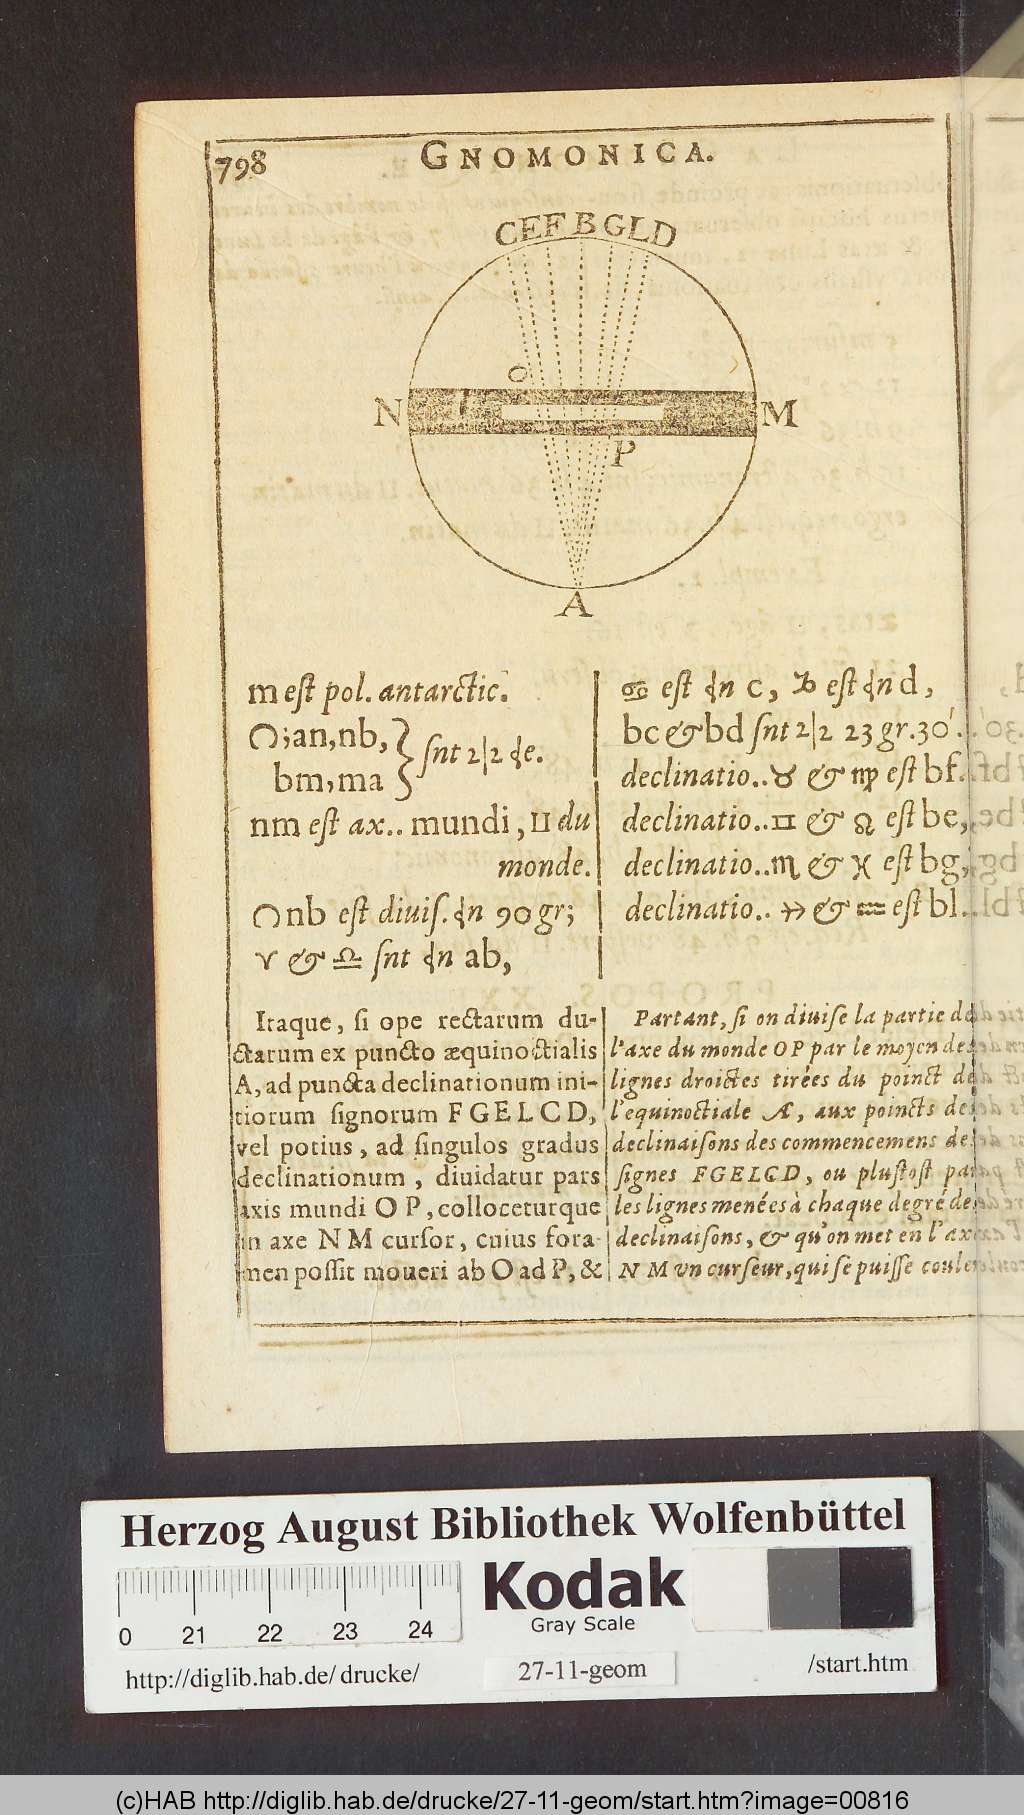 798 GNOMONICA.
C E F B G L D
O
N M
P
A
m eſt pol. antarctic.
an, nb,
bm, ma
ſnt 2|2
nm eſt ax.. mundi, du
monde.
nb eſt diuiſ. 90 gr;
♈ & ♎ ſnt ab,
♋ eſt c, ♑ eſt d,
bc & bd ſnt 2|2 23 gr. 30'.
declinatio.. ♉ & ♍ eſt bf.
declinatio.. ♊ & ♌ eſt be,
declinatio.. ♏ & ♓ eſt bg,
declinatio.. ♐ & ♒ eſt bl.
Itaque, ſi ope rectarum du-
ctarum ex puncto æquinoctialis
A, ad puncta declinationum ini-
tiorum ſignorum F G E L C D,
vel potius, ad ſingulos gradus
declinationum, diuidatur pars
axis mundi O P, colloceturque
in axe N M curſor, cuius fora-
men poſſit moueri ab O ad P, &
Partant, ſi on diuiſe la partie de
l'axe du monde O P par le moyen des
lignes droictes tirées du poinct de
l'equinoctiale A, aux poincts des
declinaiſons des commencemens des
ſignes F G E L C D, ou pluſtoſt par
les lignes menées à chaque degré de
declinaiſons, & qu'on met en l'axe
N M vn curſeur, qui ſe puiſſe couler
Herzog August Bibliothek Wolfenbüttel
0 21 22 23 24
Kodak
Gray Scale
http://diglib.hab.de/drucke/ 27-11-geom /start.htm
(c)HAB http://diglib.hab.de/drucke/27-11-geom/start.htm?image=00816